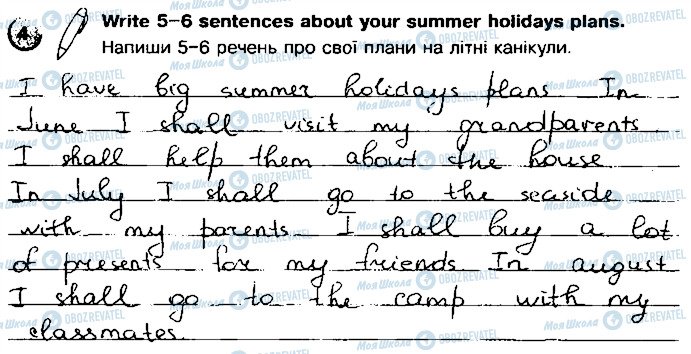 4. Write 5–6 sentences about your summer holidays plans.
Напиши 5–6 речень про свої плани на літні канікули.
I have big summer holidays plans In
June I shall visit my grandparents
I shall help them about the house
In July I shall go to the seaside
with my parents I shall buy a lot
of presents for my friends In august
I shall go to the camp with my
classmates.